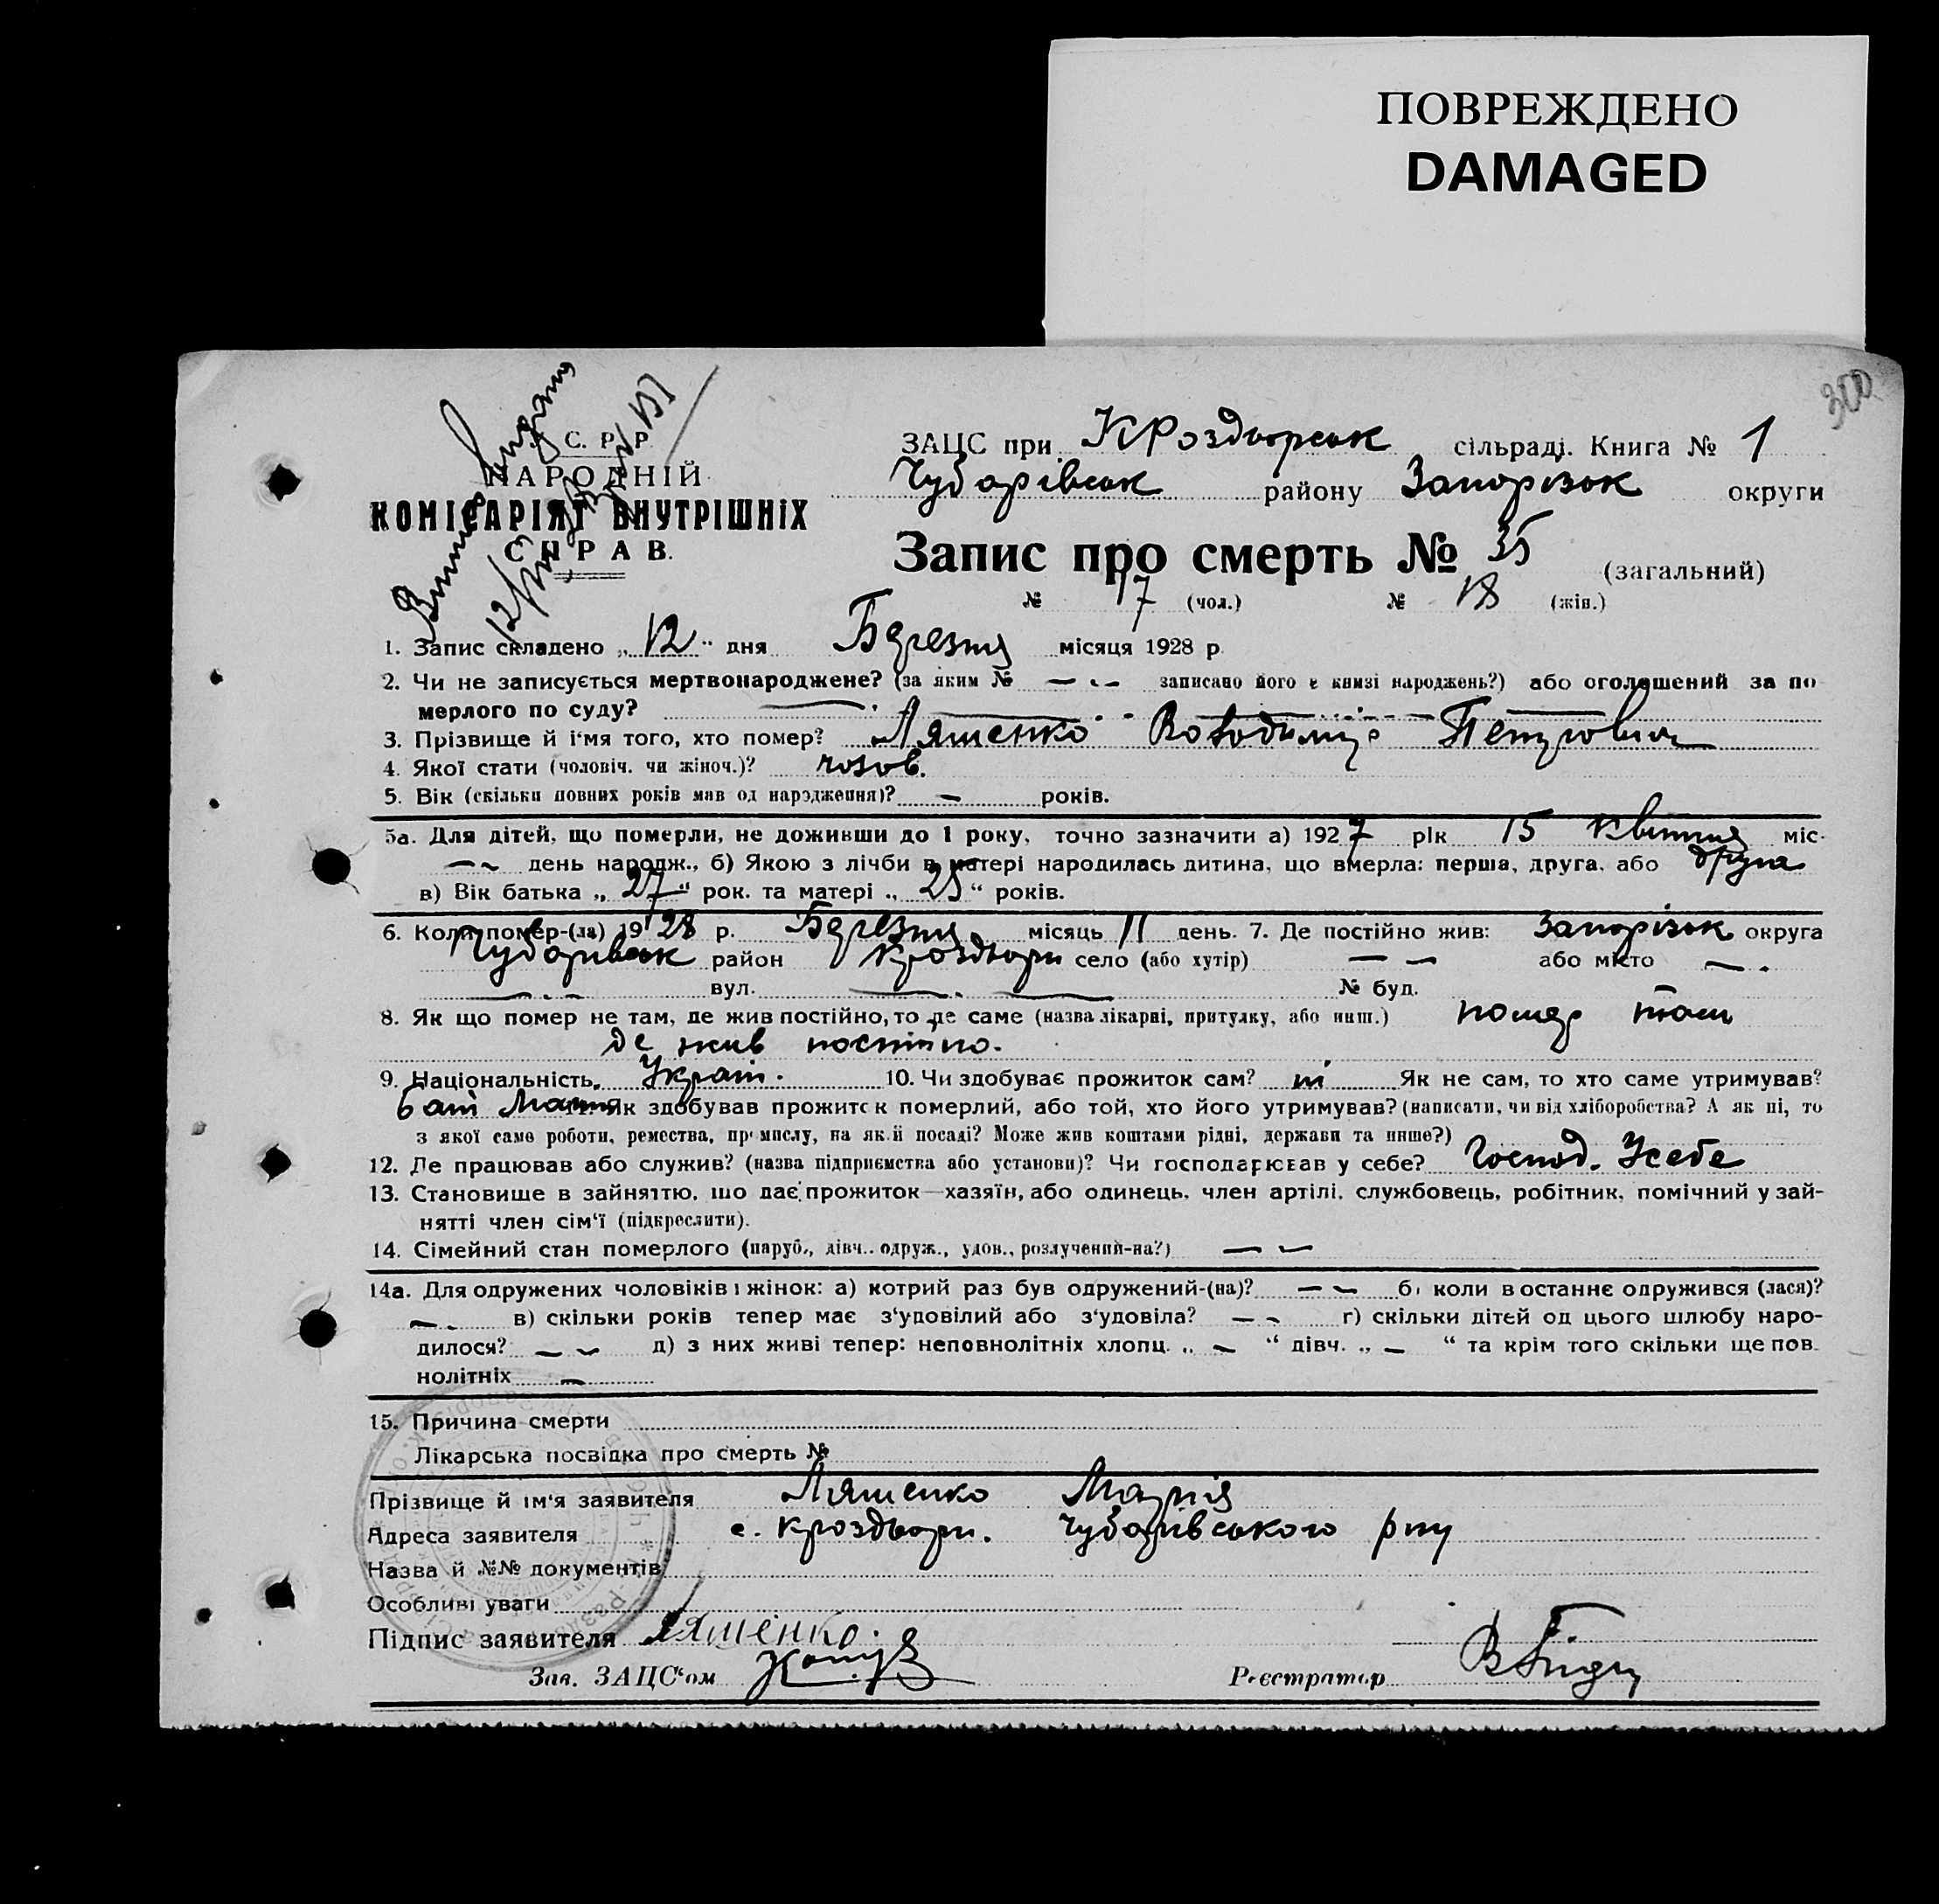 ПОВРЕЖДЕНО
DAMAGED
300
С. Р. Р.
НАРОДНІЙ
КОМІСАРІЯТ ВНУТРІШНІХ
СПРАВ.
ЗАЦС при КРоздорськ сільраді. Книга № 1
Чубарівськ району Запорізьк округи
Запис про смерть № 35 (загальний)
№ 17 (чол.) № 18 (жін.)
1. Запис складено „12“ дня Березня місяця 1928 р.
2. Чи не записується мертвонароджене? (за яким № — - — записано його в книзі народжень?) або оголошений за по
мерлого по суду?
3. Прізвище й і‘мя того, хто помер? Ляшенко Володимир Петрович
4. Якої стати (чоловіч. чи жіноч.)? чолов.
5. Вік (скільки повних років мав од народження)? — років.
5а. Для дітей, що померли, не доживши до 1 року, точно зазначити а) 1927 рік 15 Квітня міс-
— день народж., б) Якою з лічби в матері народилась дитина, що вмерла: перша, друга, або друга
в) Вік батька „27“ рок. та матері „25“ років.
6. Коли помер-(ла) 1928 р. Березня місяць 11 день. 7. Де постійно жив: Запорізьк округа
Чубарівськ район Кроздори село (або хутір) — — або місто — .
вул. № буд. —
8. Як що помер не там, де жив постійно, то де саме (назва лікарні, притулку, або инш.) помер там
де жив постійно.
9. Національність Україн. 10. Чи здобуває прожиток сам? ні Як не сам, то хто саме утримував?
Як здобував прожиток померлий, або той, хто його утримував? (написати, чи від хліборобства? А як ні, то
з якої саме роботи, ремества, промислу, на якій посаді? Може жив коштами рідні, держави та инше?)
12. Де працював або служив? (назва підприємства або установи)? Чи господарював у себе? Господ. У себе
13. Становище в зайняттю, що дає прожиток—хазяїн, або одинець, член артілі, службовець, робітник, помічний у зай-
нятті член сім‘ї (підкреслити).
14. Сімейний стан померлого (паруб., дівч., одруж., удов., розлучений-на?) — —
14а. Для одружених чоловіків і жінок: а) котрий раз був одружений-(на)? — — б) коли в останнє одружився (лася)?
— . в) скільки років тепер має з‘удовілий або з‘удовіла? — — г) скільки дітей од цього шлюбу наро-
дилося? — — д) з них живі тепер: неповнолітніх хлопц. „ — “ дівч. „ — “ та крім того скільки ще пов-
нолітніх —
15. Причина смерти
Лікарська посвідка про смерть №
Прізвище й ім‘я заявителя Ляшенко Марія
Адреса заявителя с. Кроздори. Чубарівського р-ну
Назва й №№ документів
Особливі уваги
Підпис заявителя Ляшенко.
Зав. ЗАЦС‘ом
Реєстратор